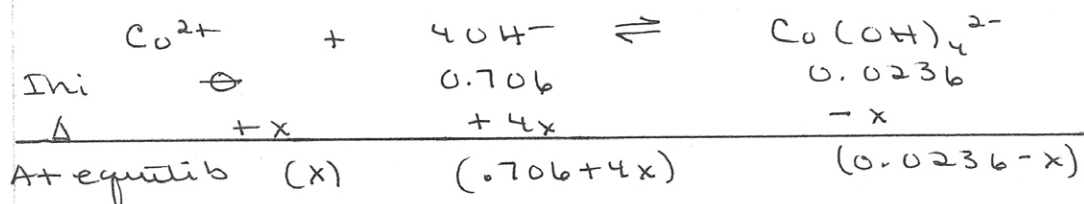 Co²⁺ + 4OH⁻ ⇌ Co(OH)₄²⁻
Ini ⊖ 0.706 0.0236
Δ +x +4x -x
At equilib (x) (.706+4x) (0.0236-x)